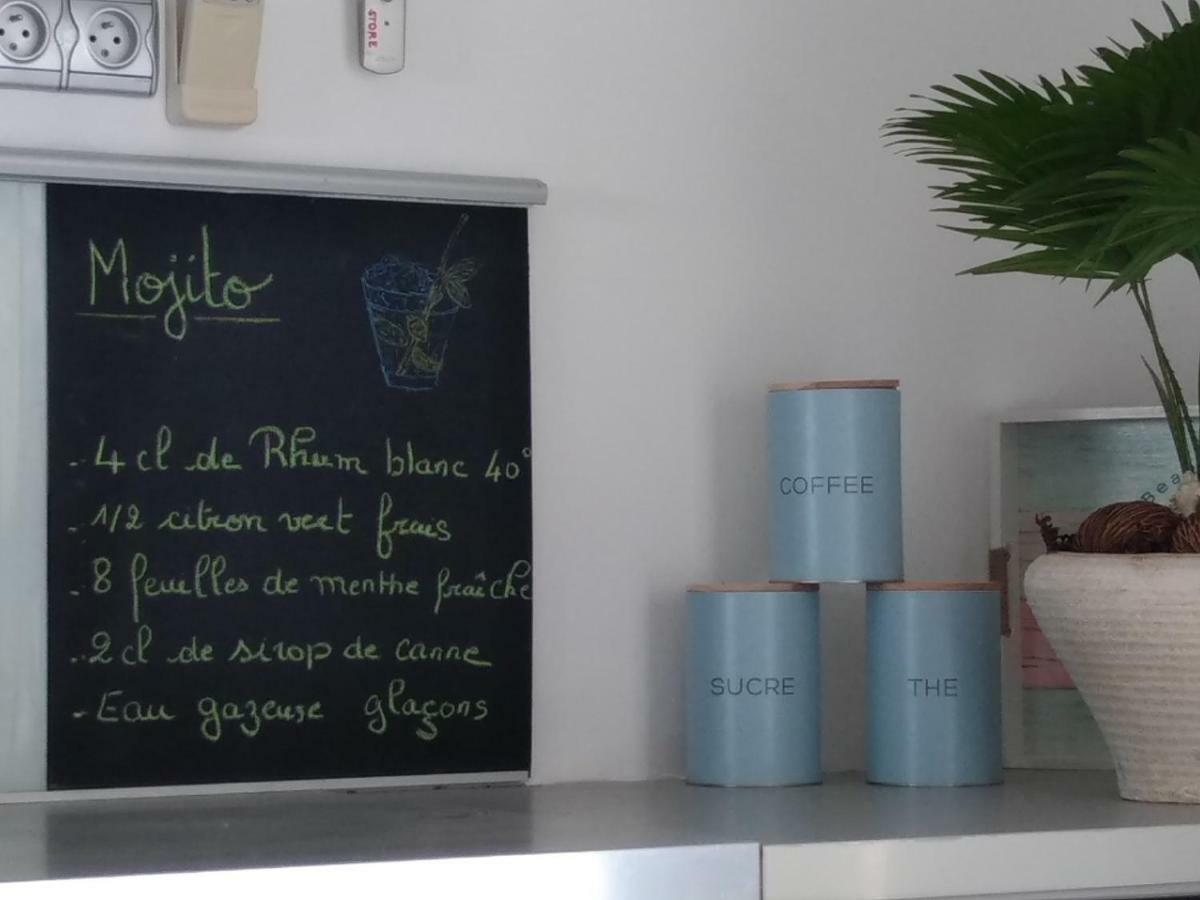 STORE
Mojito
- 4 cl de Rhum blanc 40°
- 1/2 citron vert frais
- 8 feuilles de menthe fraîche
- 2 cl de sirop de canne
- Eau gazeuse glaçons
COFFEE
SUCRE
THE
Bea